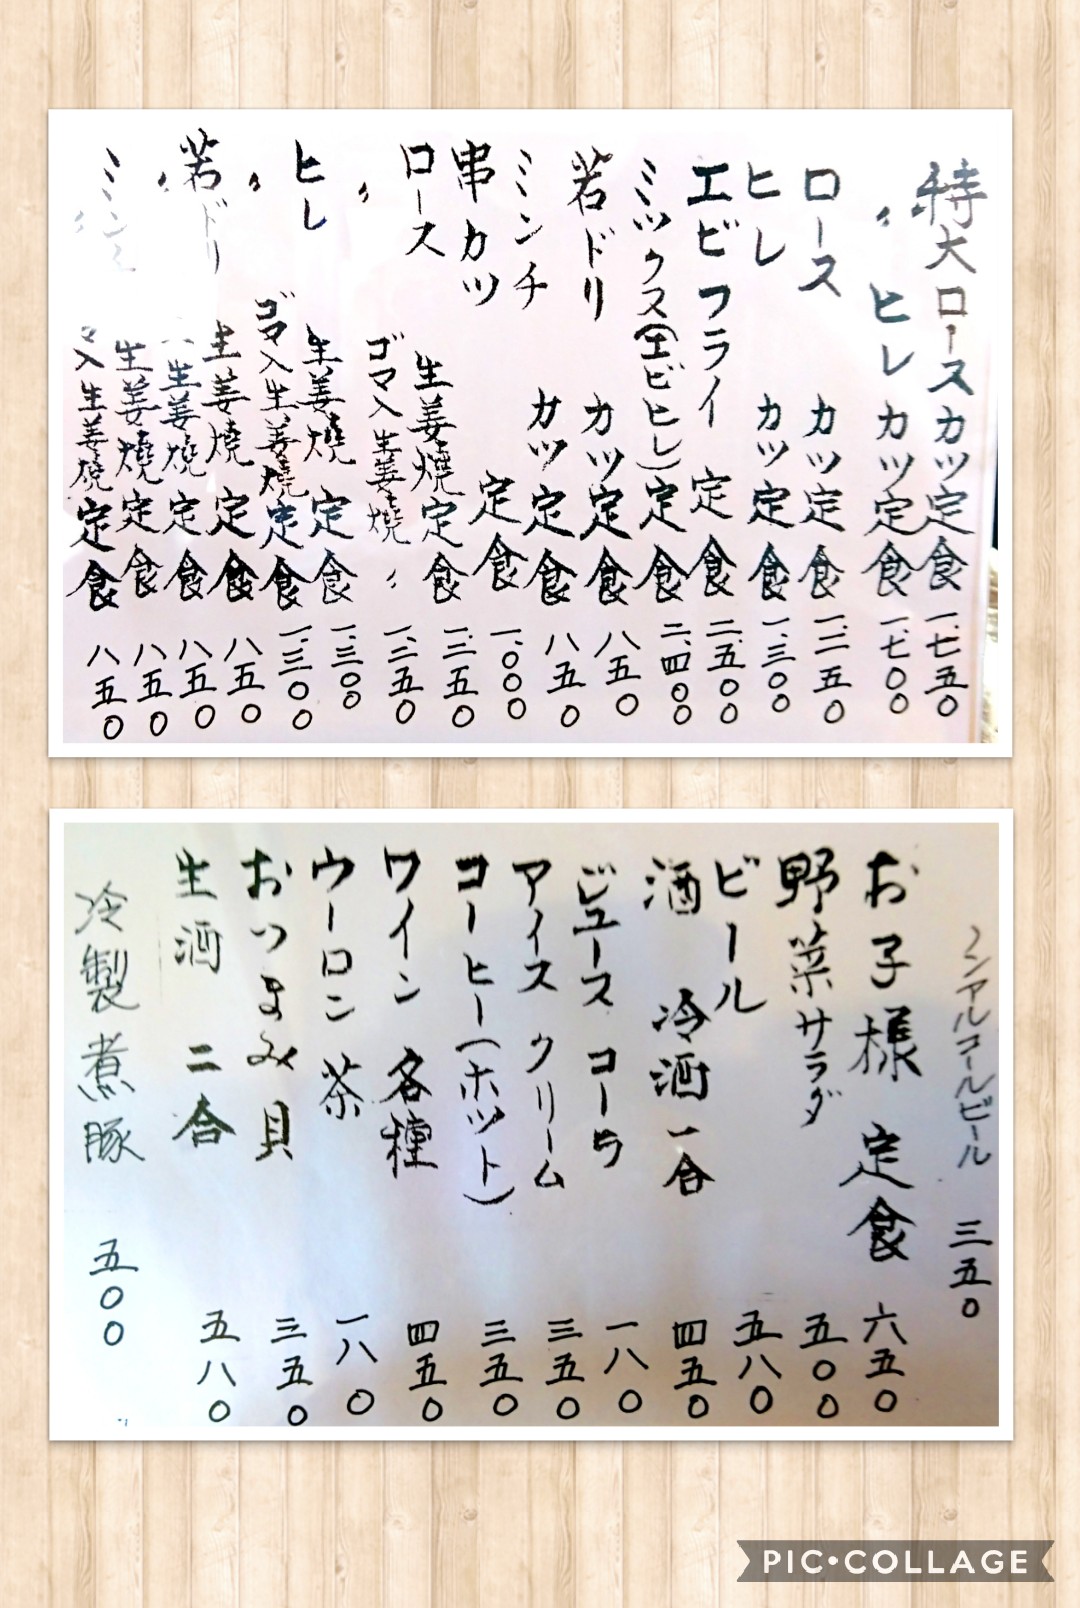 特大ロースカツ定食 一、七五〇
〃 ヒレカツ定食 一、七〇〇
ロース カツ定食 一、二五〇
ヒレ カツ定食 一、三〇〇
エビフライ 定食 二、五〇〇
ミックス(エビヒレ)定食 二、四〇〇
若ドリ カツ定食 八五〇
ミンチ カツ定食 八五〇
串カツ 定食 一、〇〇〇
ロース 生姜焼定食 一、二五〇
〃 ゴマ入生姜焼 〃 一、二五〇
ヒレ 生姜焼定食 一、三〇〇
〃 ゴマ入生姜焼定食 一、三〇〇
若ドリ 生姜焼定食 八五〇
〃 生姜焼定食 八五〇
ミンチ 生姜焼定食 八五〇
〃 入生姜焼定食 八五〇
ノンアルコールビール 三五〇
お子様 定食 六五〇
野菜サラダ 五〇〇
ビール 五八〇
酒 冷酒 一合 四五〇
ジュース コーラ 一八〇
アイスクリーム 三五〇
コーヒー(ホット) 三五〇
ワイン 各種 四五〇
ウーロン茶 一八〇
おつまみ 貝 三五〇
生酒 二合 五八〇
冷製煮豚 五〇〇
PIC•COLLAGE